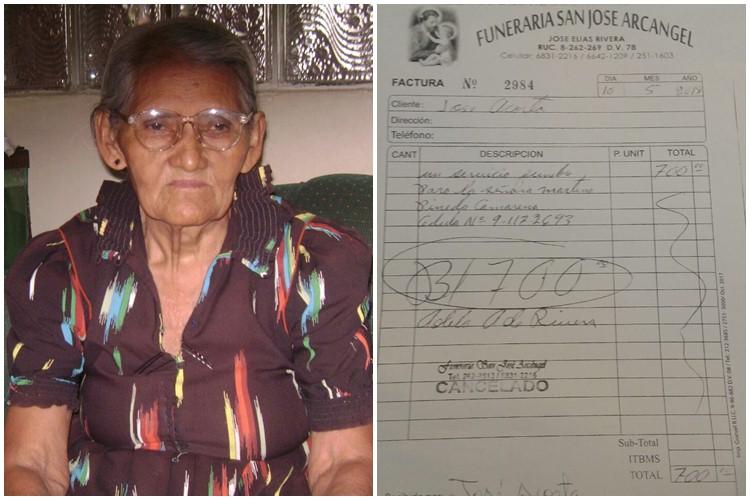 FUNERARIA SAN JOSE ARCANGEL
JOSE ELIAS RIVERA
RUC. 8-262-269 D.V. 78
Celular: 6831-2216 / 6642-1209 / 251-1603
FACTURA Nº 2984
DIA MES AÑO
10 5 2018
Cliente: José Acosta
Dirección:
Teléfono:
CANT DESCRIPCION P. UNIT TOTAL
un servicio 700 00
Para la señora
Pineda Camarena
Cedula Nº 9-112-2693
B/ 700 00
Rivera
Funeraria San José Arcángel
CANCELADO
Sub-Total
ITBMS
TOTAL 700 00
José Acosta